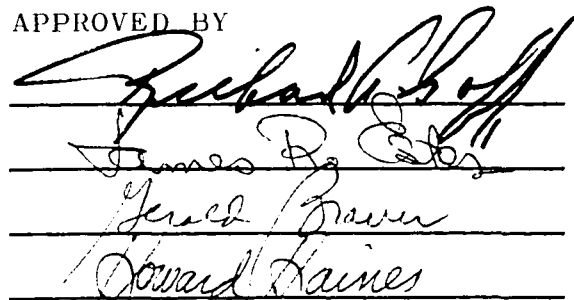 APPROVED BY
Richard
James R. Estes
Gerald Brauer
Howard Haines